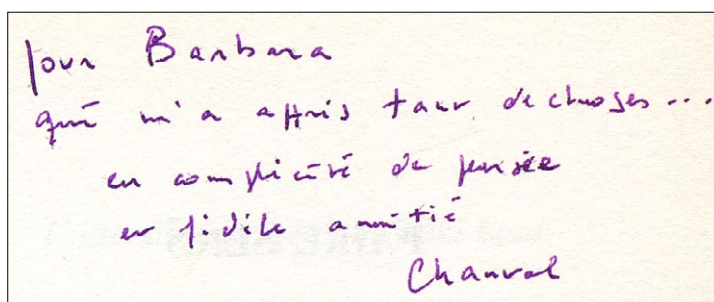 Pour Barbara
qui m'a appris tant de choses...
en complicité de pensée
en fidèle amitié
Chantal